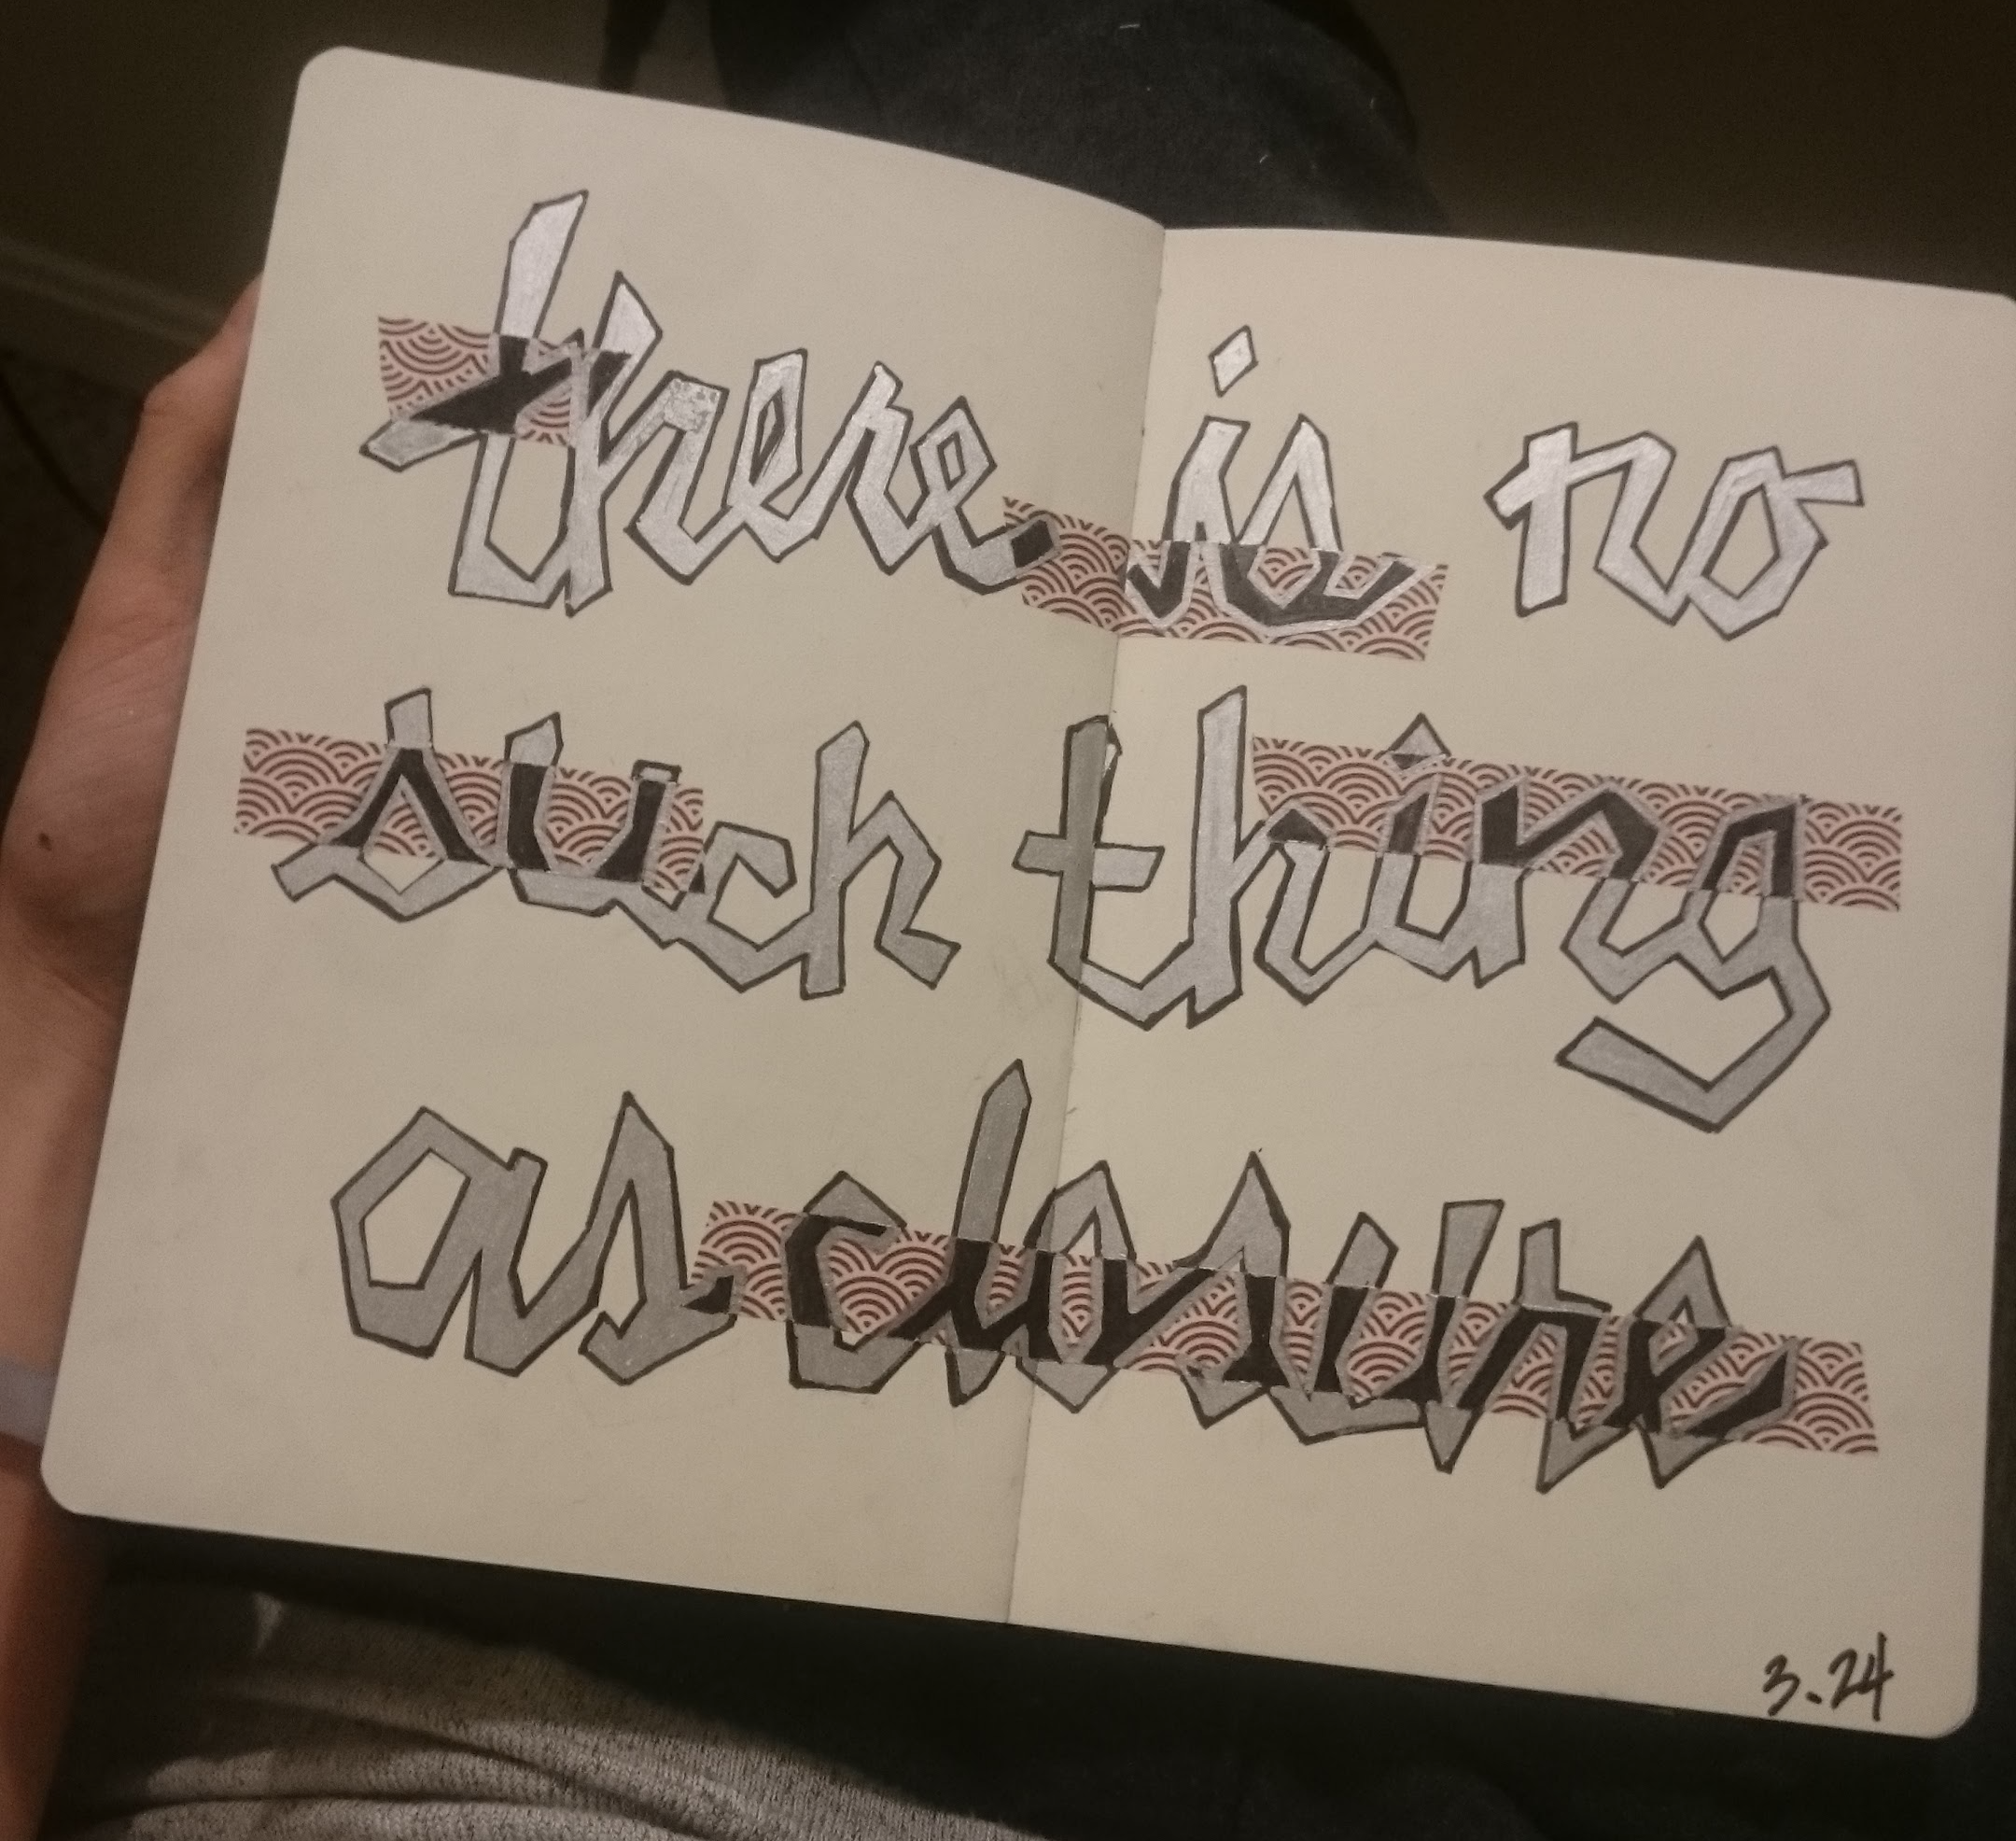 there is no
such thing
as closure
3.24